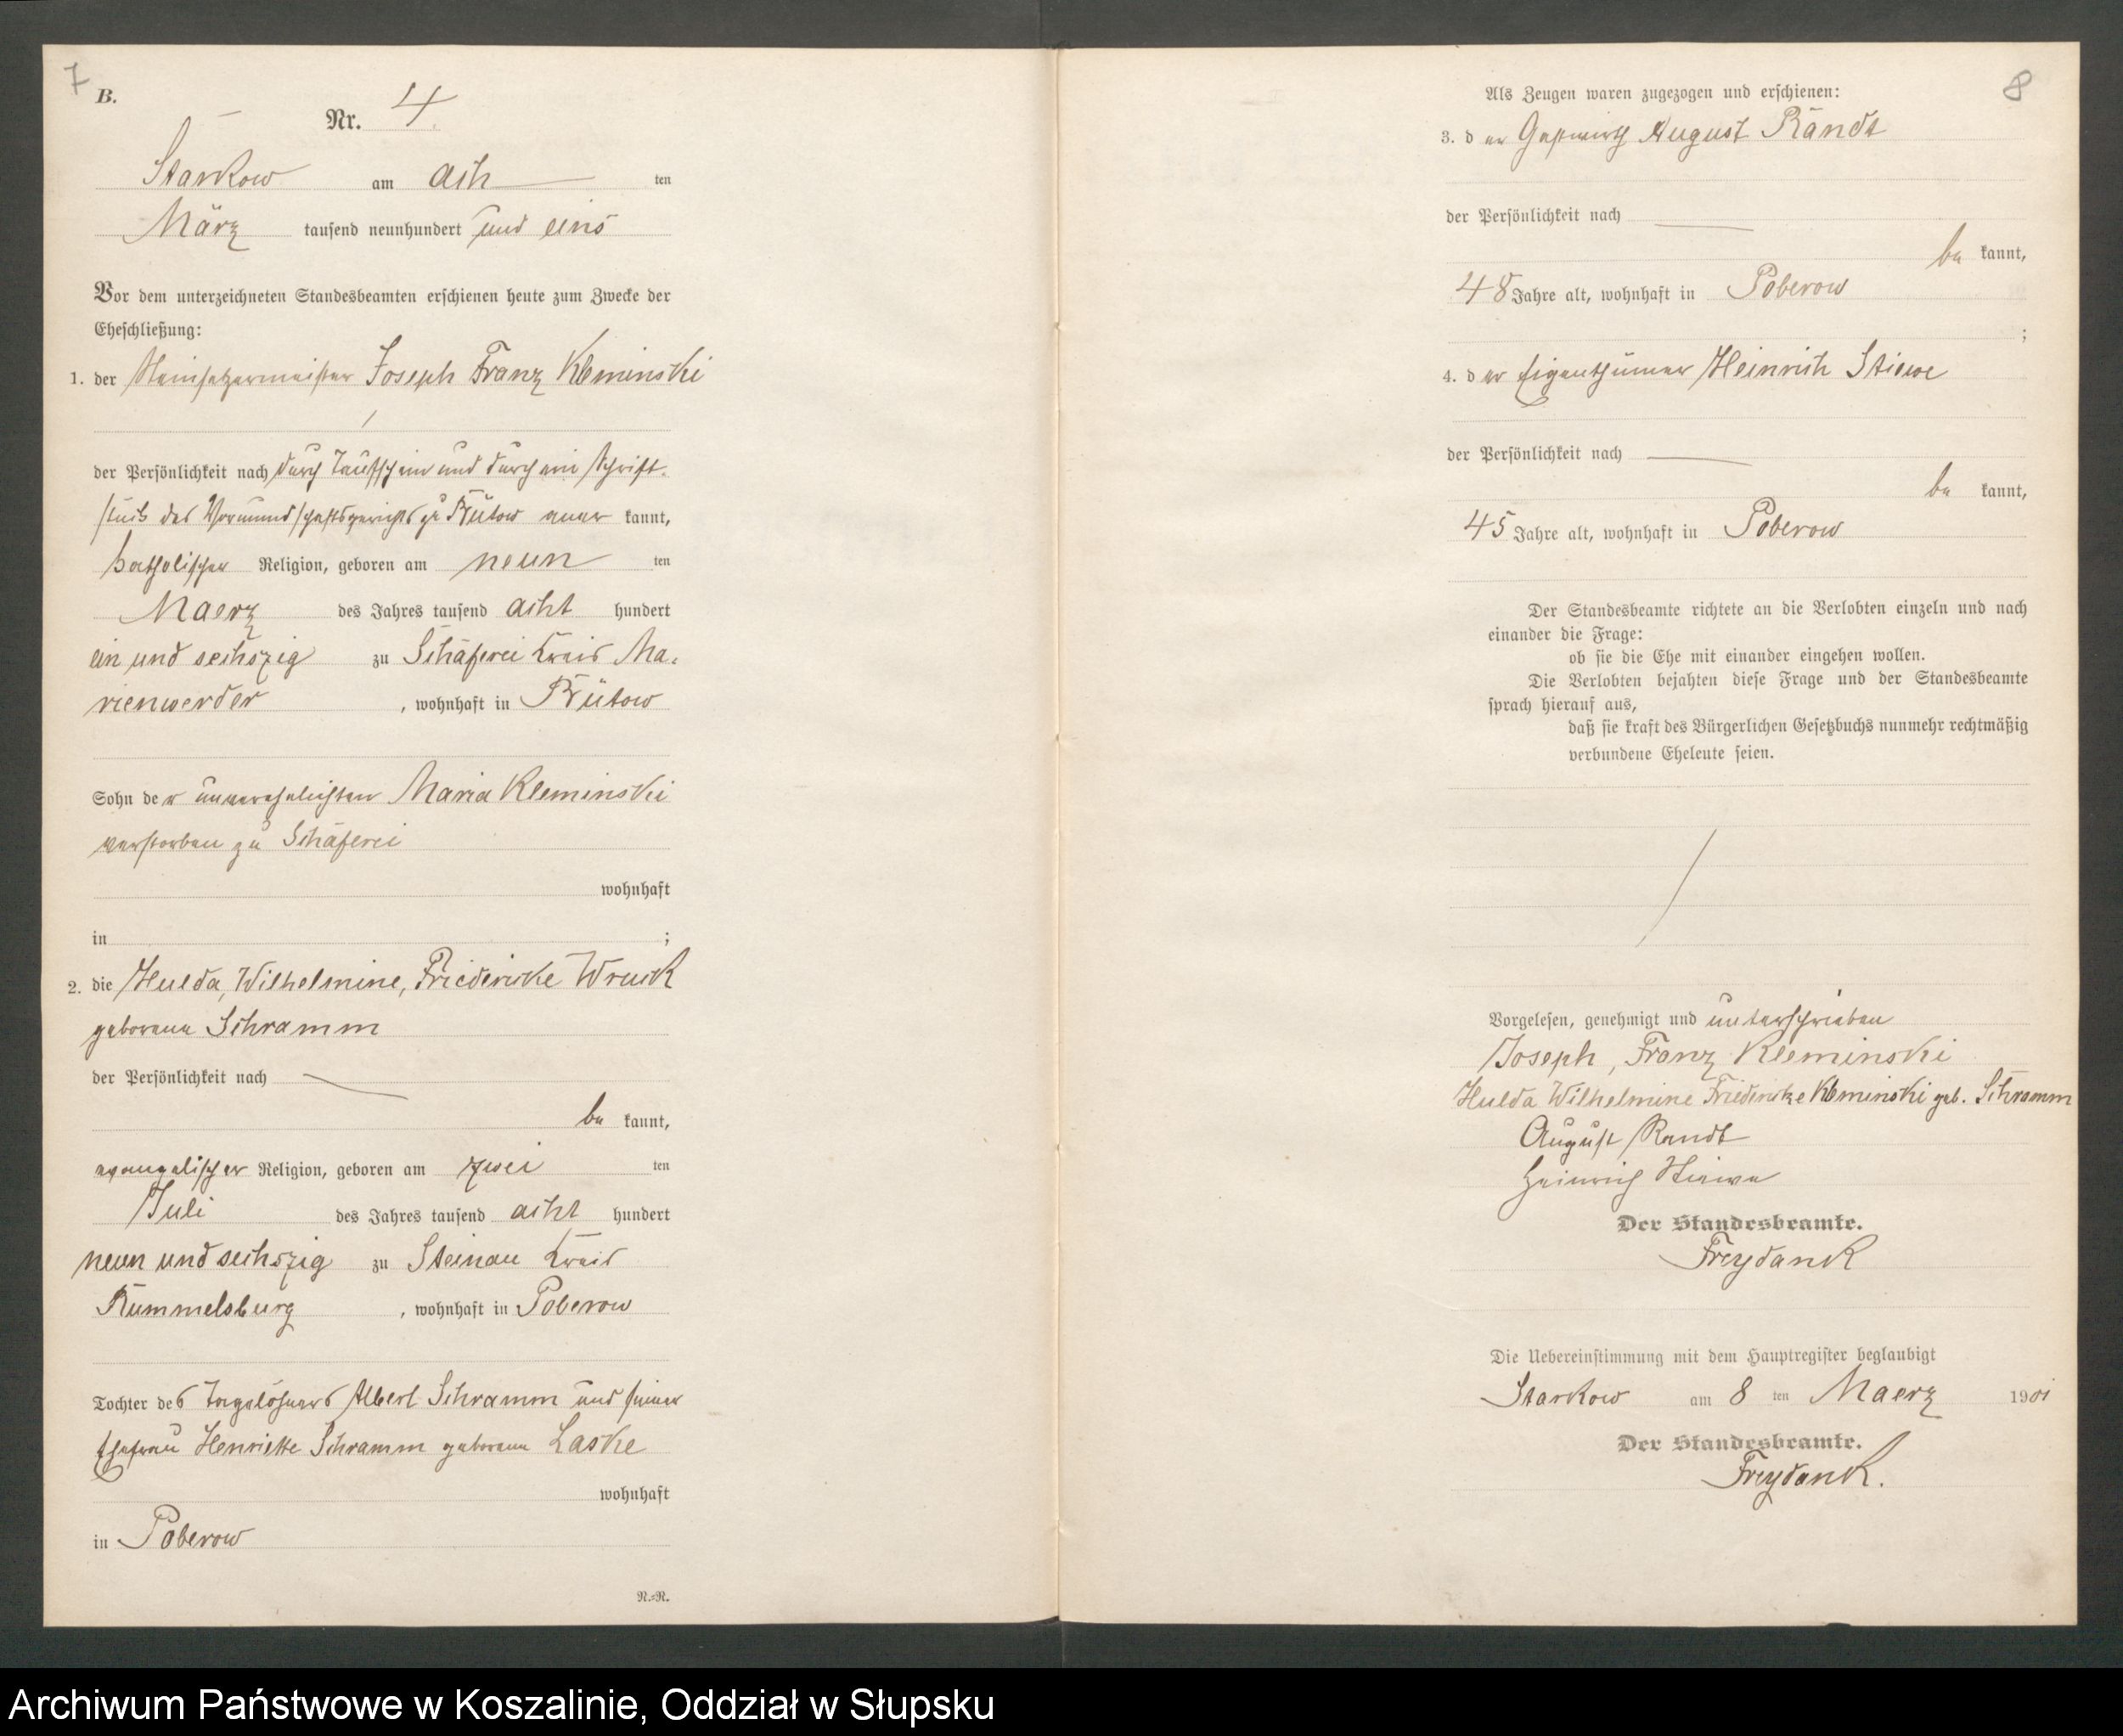 7
B.
Nr. 4.
Starkow am ach ten
März tausend neunhundert und eins
Vor dem unterzeichneten Standesbeamten erschienen heute zum Zwecke der
Eheschließung:
1. der Steinsetzermeister Joseph Franz Kleminski
der Persönlichkeit nach durch Taufschein und durch ein Schrift-
stück des Vormundschaftsgerichts zu Bütow aner kannt,
katholischer Religion, geboren am neun ten
Maerz des Jahres tausend acht hundert
ein und sechszig zu Schäferei Kreis Ma-
rienwerder , wohnhaft in Bütow
Sohn der unverehelichten Maria Kleminski
verstorben zu Schäferei
wohnhaft
in ;
2. die Hulda, Wilhelmine, Friedericke Wruck
geborene Schramm
der Persönlichkeit nach
be kannt,
evangelischer Religion, geboren am zwei ten
Juli des Jahres tausend acht hundert
neun und sechszig zu Steinau Kreis
Rummelsburg , wohnhaft in Poberow
Tochter des Tagelöhners Albert Schramm und seiner
Ehefrau Henriette Schramm geborene Laske
wohnhaft
in Poberow
N.=R.
8
Als Zeugen waren zugezogen und erschienen:
3. d er Gastwirth August Randt
der Persönlichkeit nach
be kannt,
48 Jahre alt, wohnhaft in Poberow
;
4. d er Eigenthümer Heinrich Stiewe
der Persönlichkeit nach
be kannt,
45 Jahre alt, wohnhaft in Poberow
Der Standesbeamte richtete an die Verlobten einzeln und nach
einander die Frage:
ob sie die Ehe mit einander eingehen wollen.
Die Verlobten bejahten diese Frage und der Standesbeamte
sprach hierauf aus,
daß sie kraft des Bürgerlichen Gesetzbuchs nunmehr rechtmäßig
verbundene Eheleute seien.
Vorgelesen, genehmigt und unterschrieben
Joseph, Franz Kleminski
Hulda Wilhelmine Friedericke Kleminski geb. Schramm
August Randt
Heinrich Stiewe
Der Standesbeamte.
Freydank
Die Uebereinstimmung mit dem Hauptregister beglaubigt
Starkow am 8 ten Maerz 1901
Der Standesbeamte.
Freydank.
Archiwum Państwowe w Koszalinie, Oddział w Słupsku